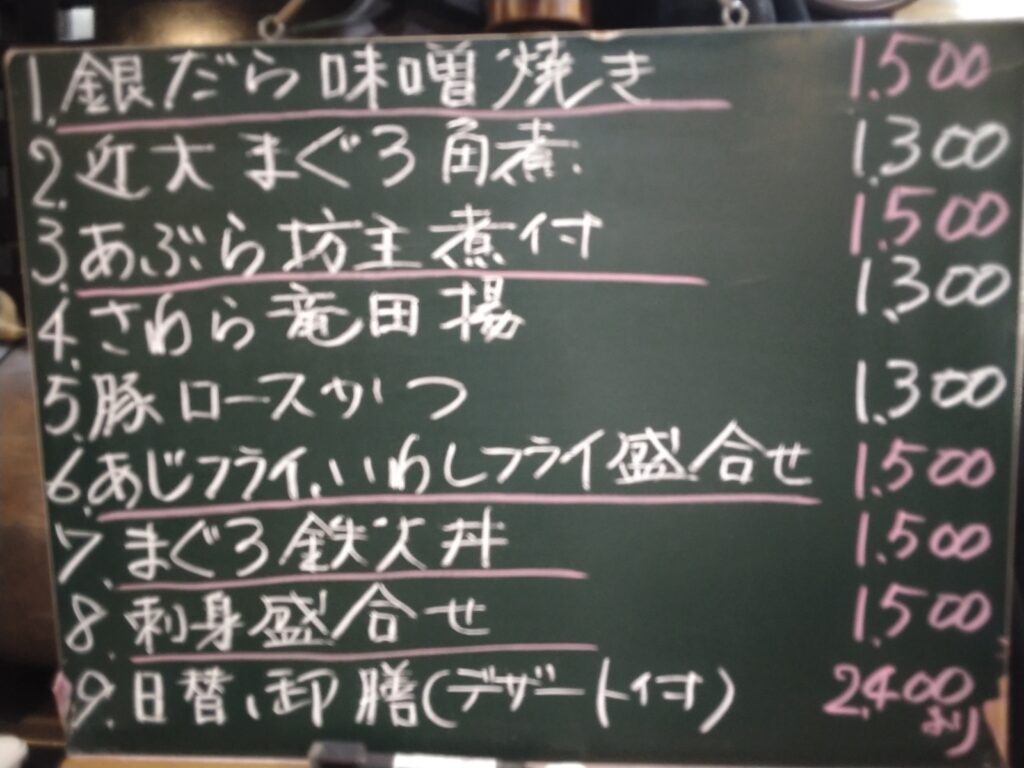 1. 銀だら味噌焼き 1.500
2. 近大まぐろ角煮 1.300
3. あぶら坊主煮付 1.500
4. さわら竜田揚 1.300
5. 豚ロースかつ 1.300
6. あじフライ、いわしフライ盛合せ 1.500
7. まぐろ鉄火丼 1.500
8. 刺身盛合せ 1.500
9. 日替り御膳(デザート付) 2.400より